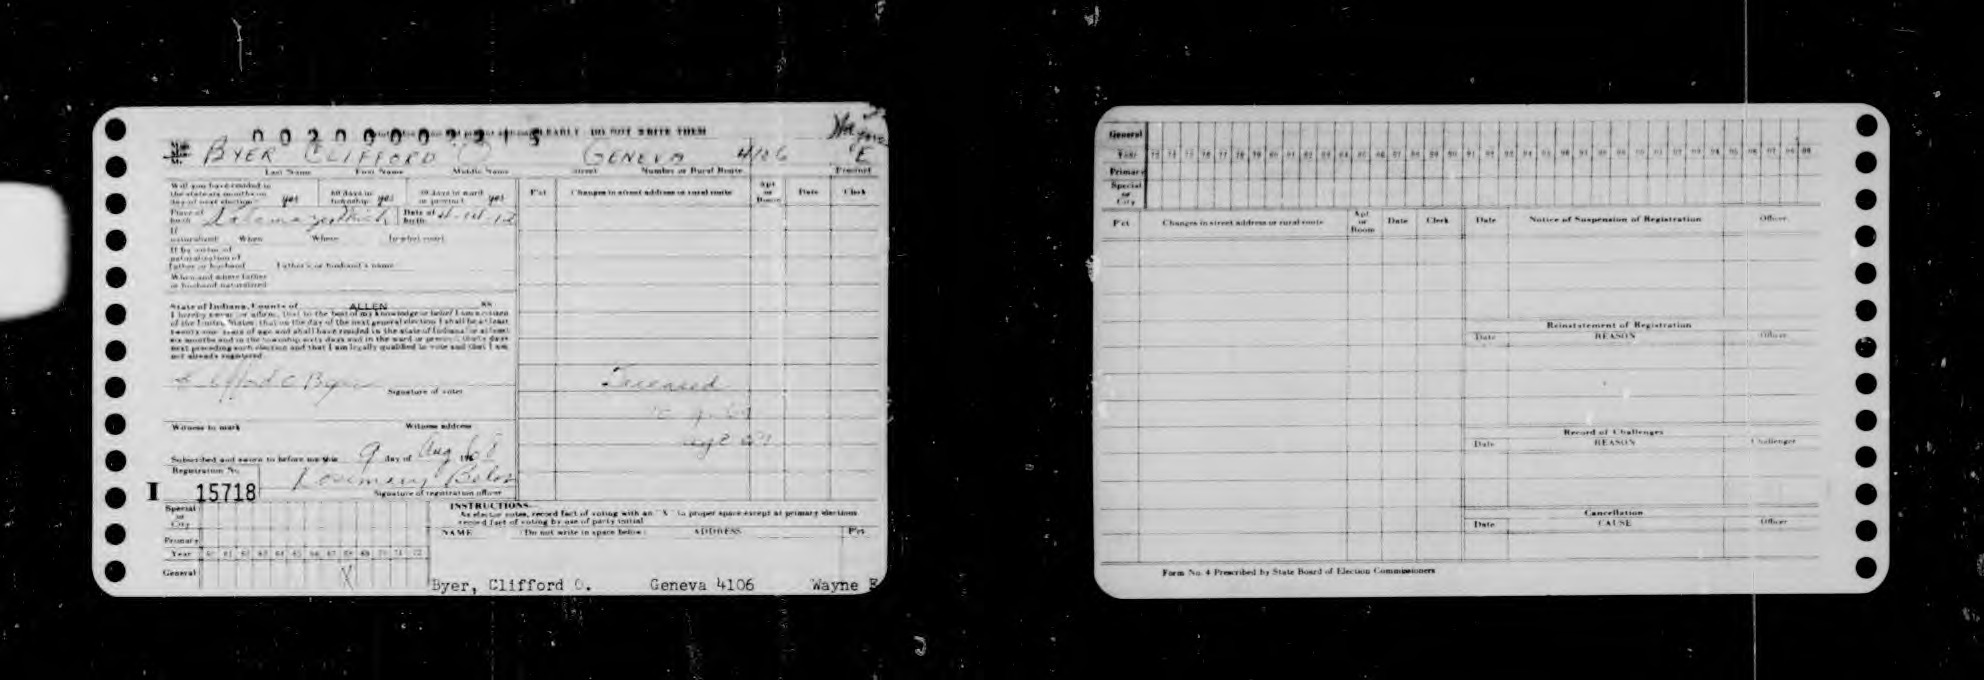 00200002215
EARLY DO NOT WRITE THEM
Wayne
BYER CLIFFORD O GENEVA 4106 E
Last Name First Name Middle Name Street Number or Rural Route Precinct
Will you have resided in
the state six months on
day of next election yes
60 days in
township yes
30 days in ward
or precinct yes
Place of
birth Kalamazoo Mich
Date of
birth
If
naturalized When Where (what court)
If by virtue of
naturalization of
father or husband Father's or husband's name
When and where father
or husband naturalized
State of Indiana, County of ALLEN ss
I hereby swear or affirm, that to the best of my knowledge or belief I am a citizen
of the United States; that on the day of the next general election I shall be at least
twenty-one years of age and shall have resided in the state of Indiana for at least
six months and in the township sixty days and in the ward or precinct thirty days
next preceding such election and that I am legally qualified to vote and that I am
not already registered
Clifford O Byer
Signature of voter
Witness to mark Witness address
Subscribed and sworn to before me this 9 day of Aug 1968
Registration No.
I 15718
Rosemary
Signature of registration officer
Pct Changes in street address or rural route Apt or Room Date Clerk
Deceased
age
Special
or
City
Primary
Year 60 61 62 63 64 65 66 67 68 69 70 71 72
General X
INSTRUCTIONS
As elector votes, record fact of voting with an "X" in proper space except at primary elections
record fact of voting by use of party initial
NAME (Do not write in space below) ADDRESS Pct
Byer, Clifford O. Geneva 4106 Wayne E
General
Year 73 74 75 76 77 78 79 80 81 82 83 84 85 86 87 88 89 90 91 92 93 94 95 96 97 98 99
Primary
Special
or
City
Pct Changes in street address or rural route Apt or Room Date Clerk
Date Notice of Suspension of Registration Officer
Reinstatement of Registration
Date REASON Officer
Record of Challenges
Date REASON Challenger
Cancellation
Date CAUSE Officer
Form No. 4 Prescribed by State Board of Election Commissioners